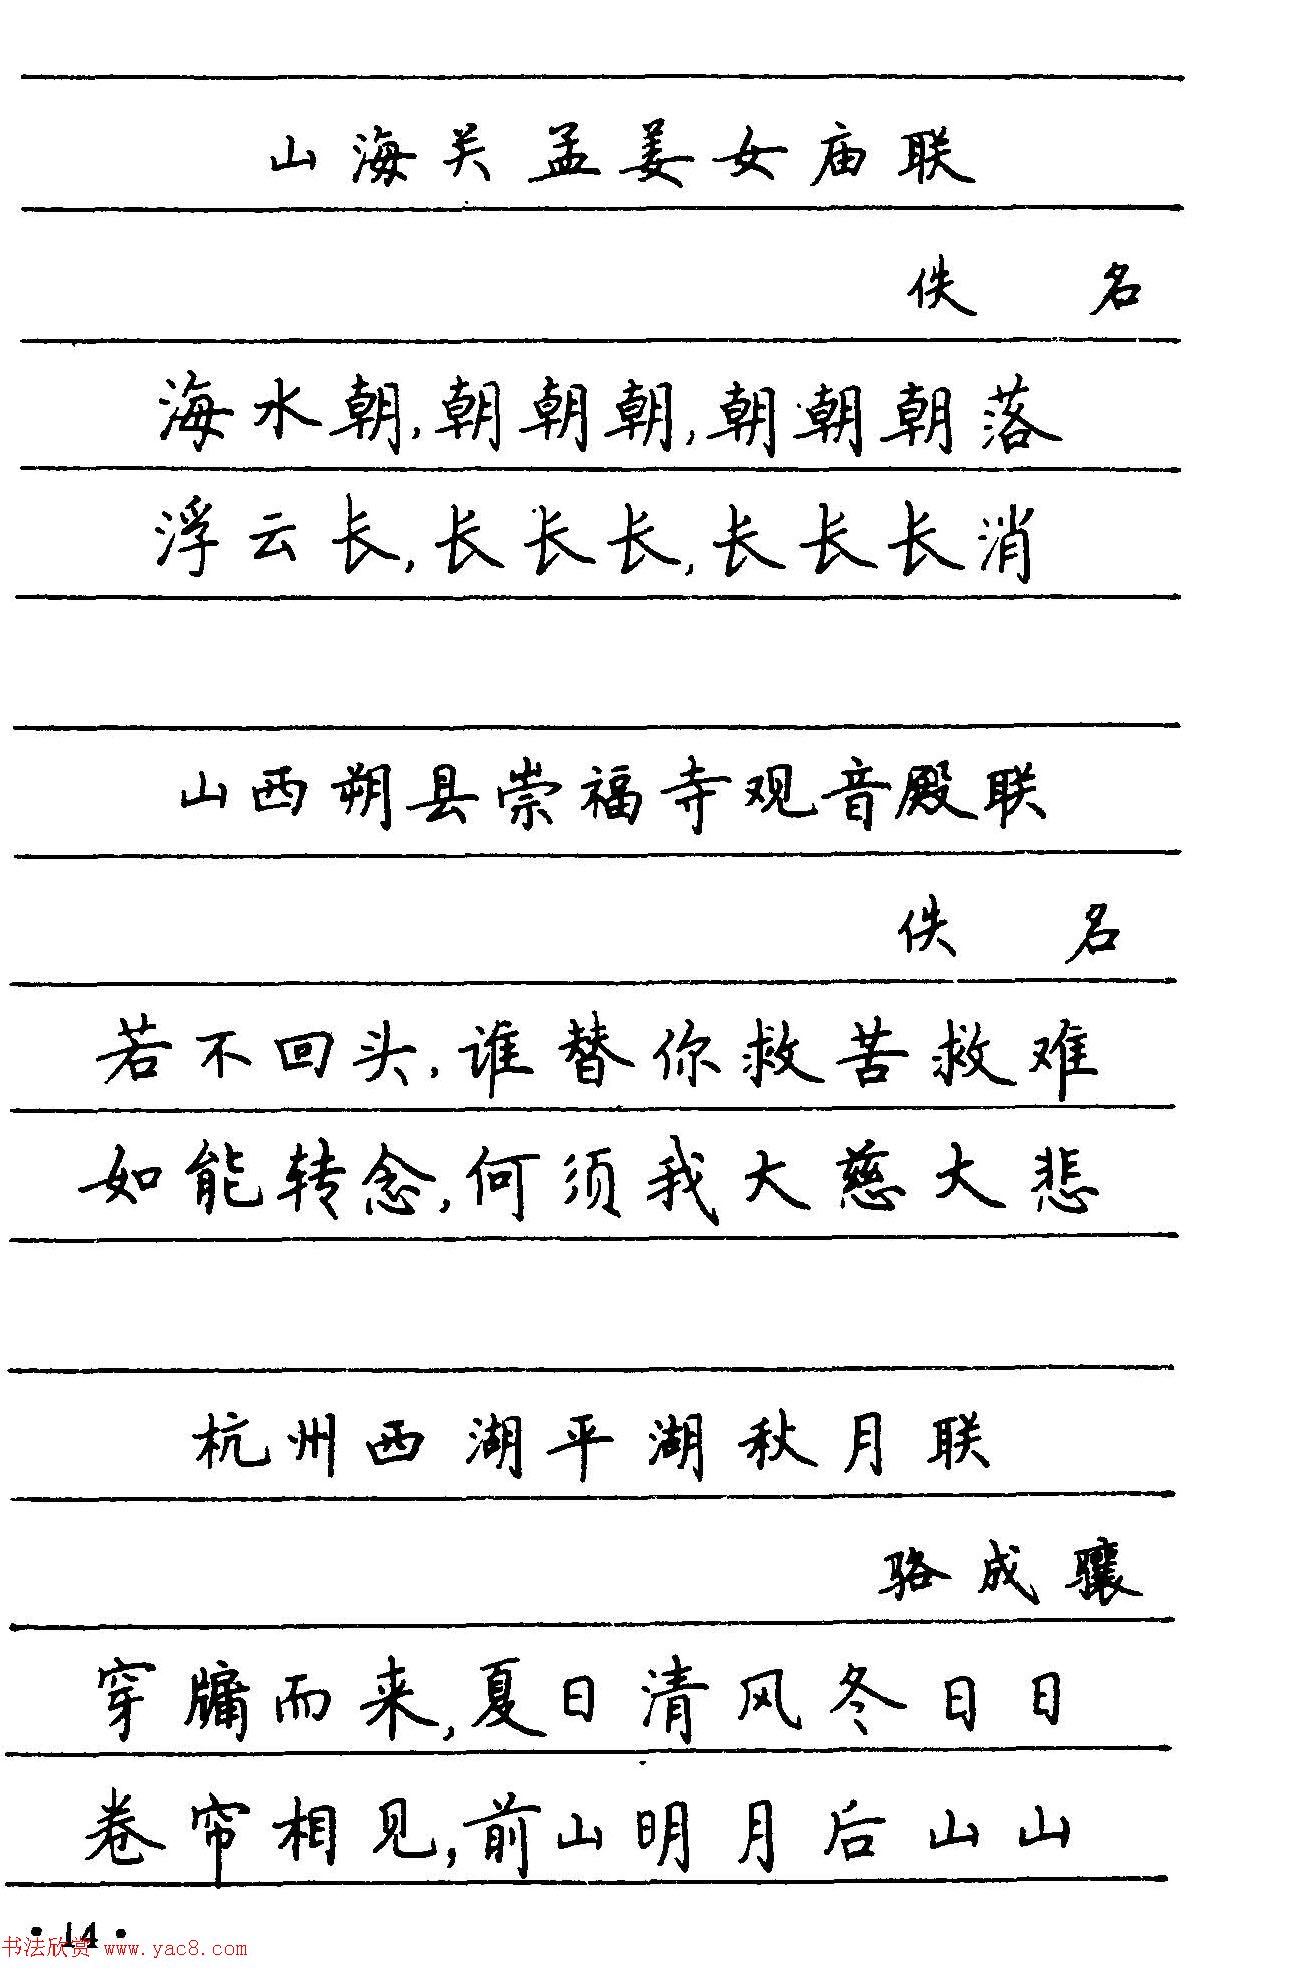 山海关孟姜女庙联
佚 名
海水朝,朝朝朝,朝朝朝落
浮云长,长长长,长长长消
山西朔县崇福寺观音殿联
佚 名
若不回头,谁替你救苦救难
如能转念,何须我大慈大悲
杭州西湖平湖秋月联
骆成骧
穿牖而来,夏日清风冬日日
卷帘相见,前山明月后山山
·14·
书法欣赏 www.yac8.com